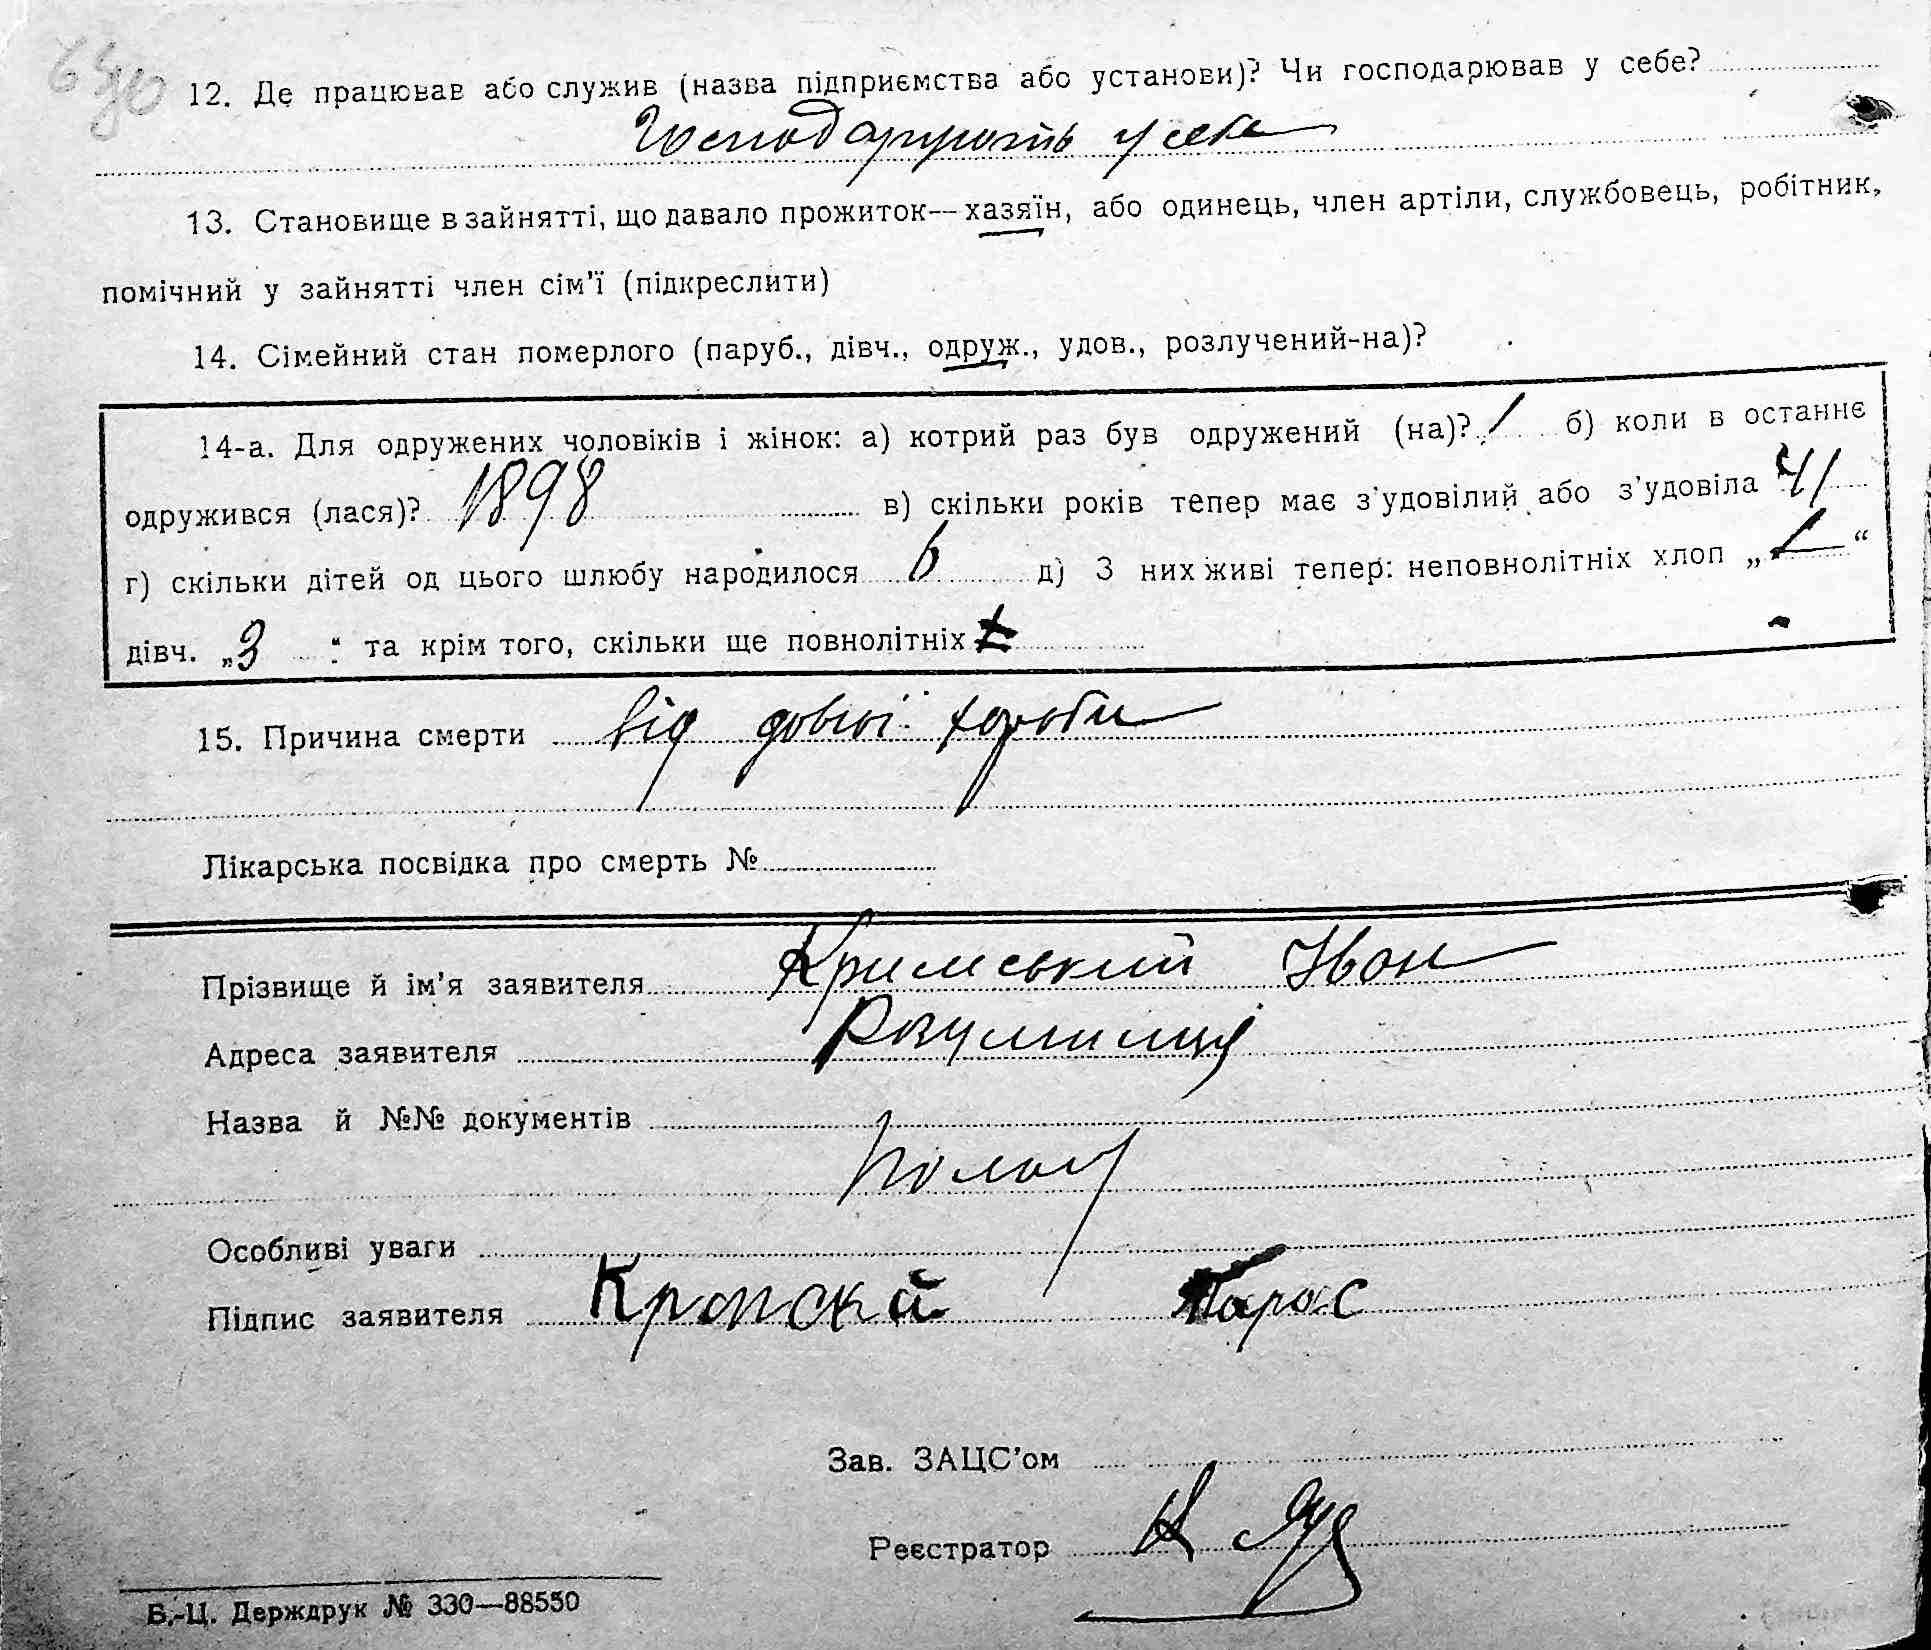 12. Де працював або служив (назва підприємства або установи)? Чи господарював у себе?
Господарують у себе
13. Становище в зайнятті, що давало прожиток—хазяїн, або одинець, член артіли, службовець, робітник,
помічний у зайнятті член сім'ї (підкреслити)
14. Сімейний стан померлого (паруб., дівч., одруж., удов., розлучений-на)?
14-а. Для одружених чоловіків і жінок: а) котрий раз був одружений (на)? 1 б) коли в останнє
одружився (лася)? 1898 в) скільки років тепер має з'удовілий або з'удовіла 41
г) скільки дітей од цього шлюбу народилося 6 д) З них живі тепер: неповнолітніх хлоп „ — “
дівч. „3 “ та крім того, скільки ще повнолітніх
15. Причина смерти від довгої хороби
Лікарська посвідка про смерть №
Прізвище й ім'я заявителя Кримський Іван
Адреса заявителя Розумниця
Назва й №№ документів
Особливі уваги
Підпис заявителя Тарас
Зав. ЗАЦС'ом
Реєстратор
Б.-Ц. Держдрук № 330—88550